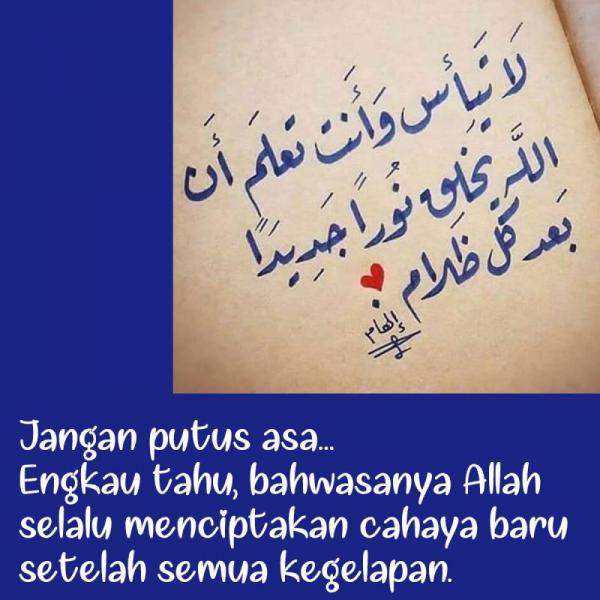 لَا تَيَأس وَأَنت تَعلَم أَن
اللَّه يَخلِق نُوراً جَدِيدَاً
بَعد كُل ظَلام
إلهام
Jangan putus asa...
Engkau tahu, bahwasanya Allah
selalu menciptakan cahaya baru
setelah semua kegelapan.